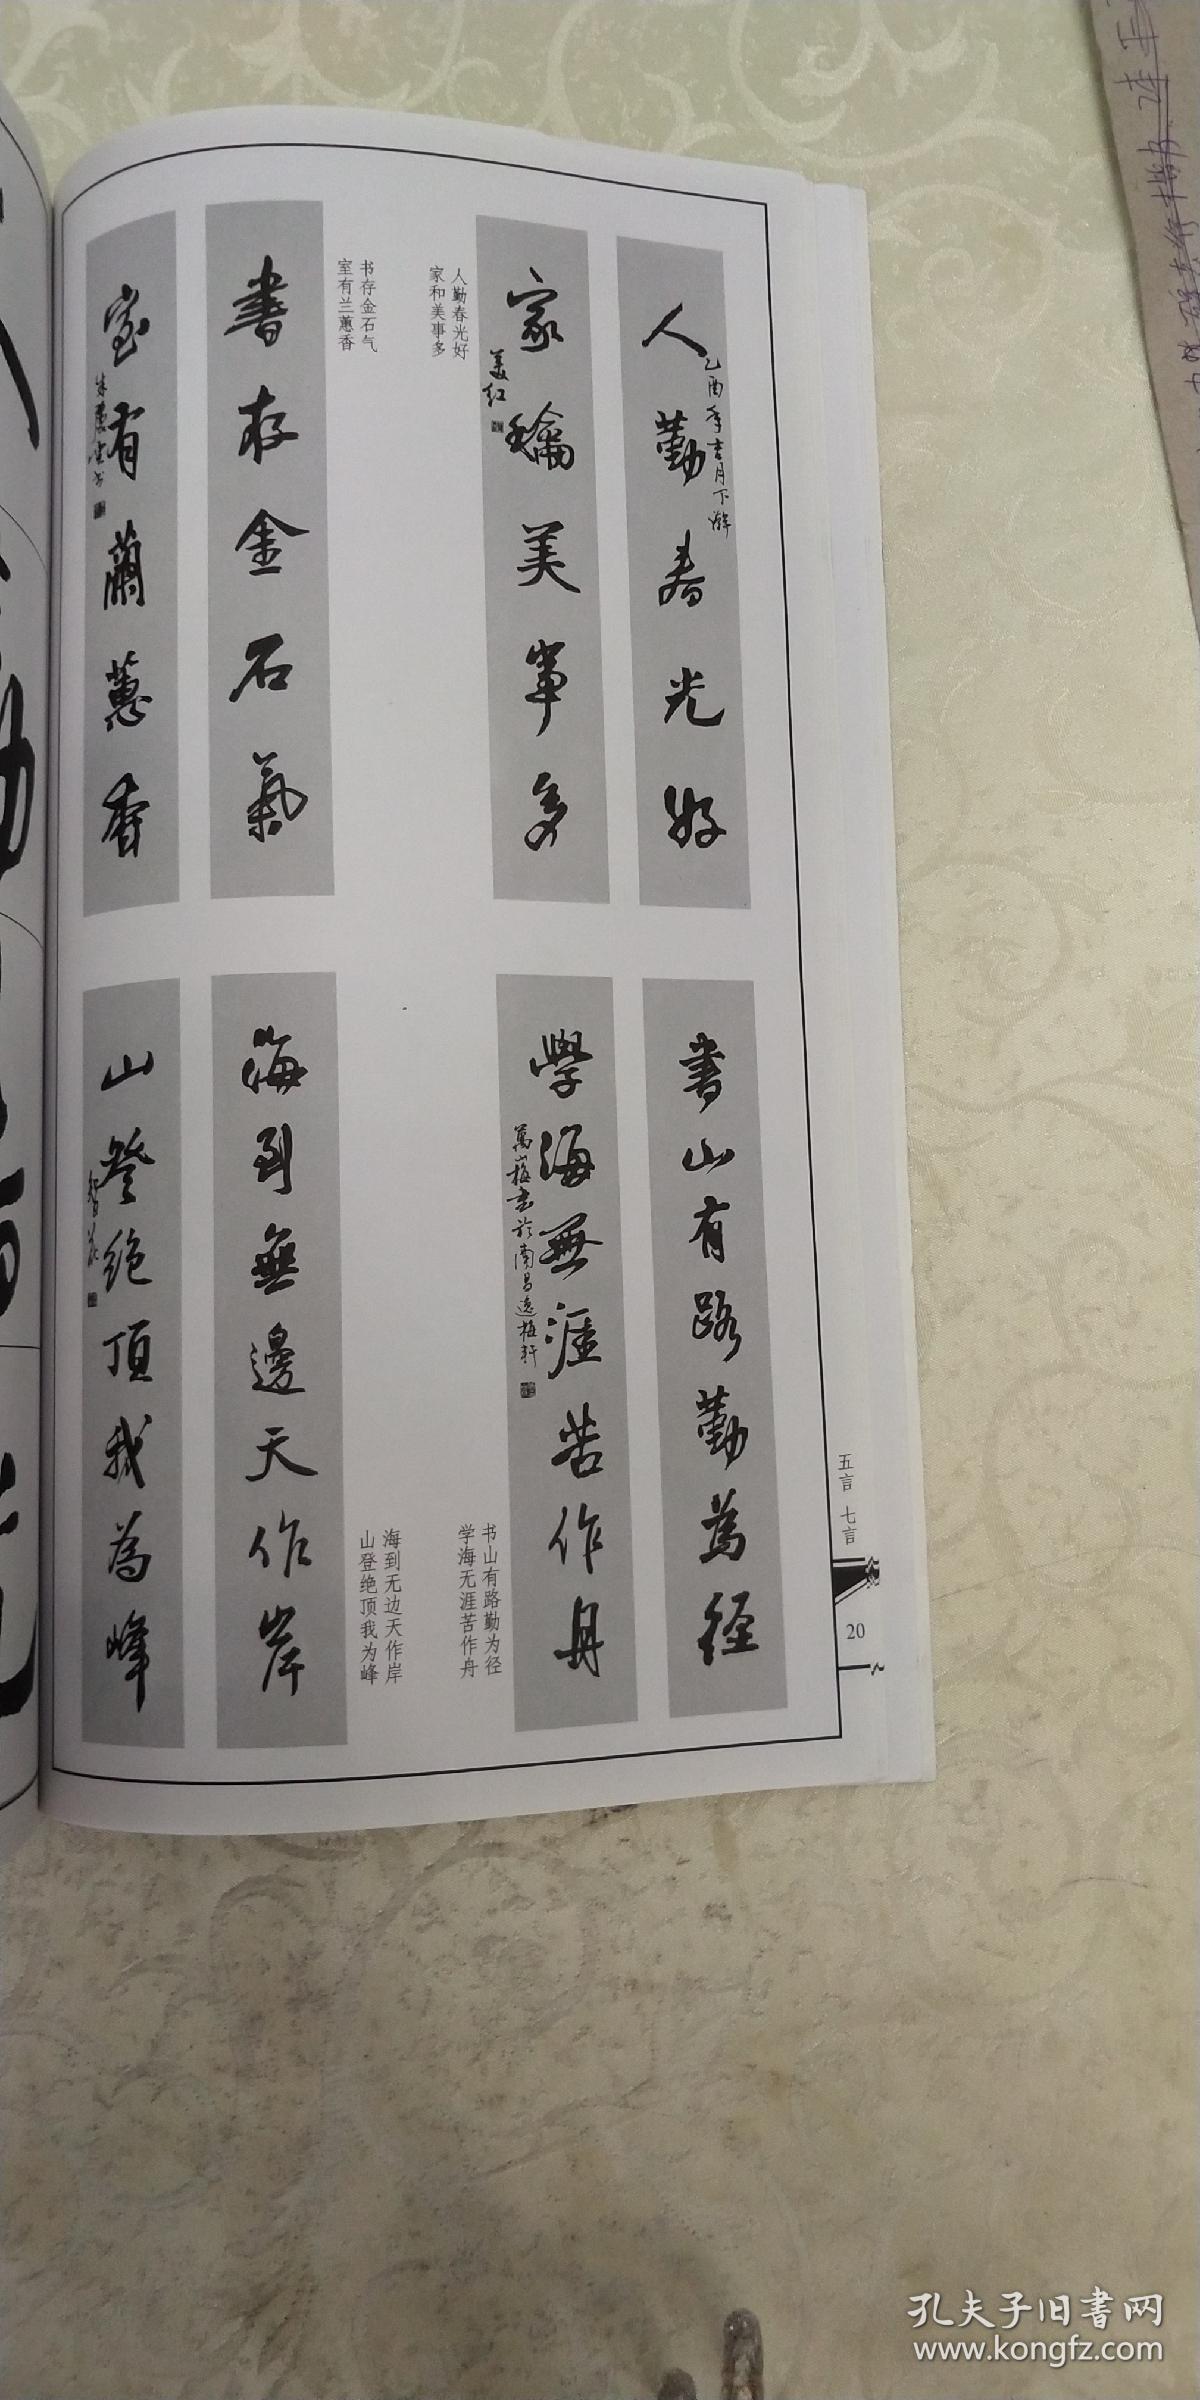 人勤春光好
乙酉年吉月下澣
家龢美事多
美红
人勤春光好
家和美事多
書存金石氣
室有蘭蕙香
书存金石气
室有兰蕙香
書山有路勤為徑
學海無涯苦作舟
书山有路勤为径
学海无涯苦作舟
海到無邊天作岸
山登絶頂我為峰
海到无边天作岸
山登绝顶我为峰
五言 七言
20
孔夫子旧書网
www.kongfz.com